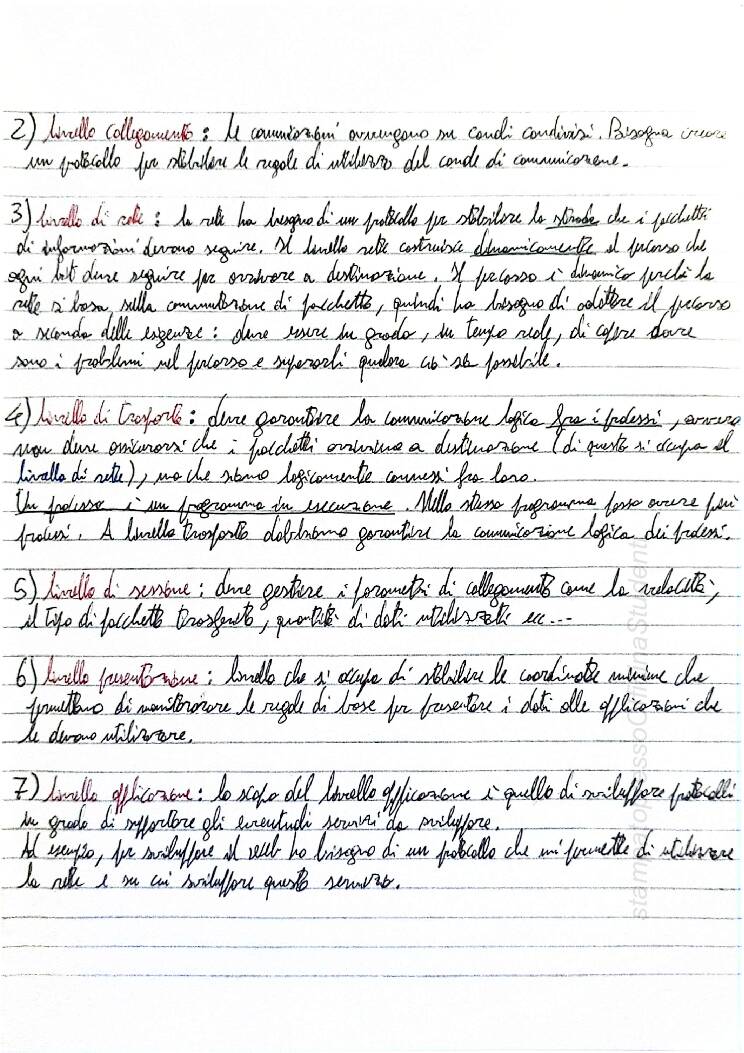 2) livello collegamento : le comunicazioni avvengono su canali condivisi. Bisogna creare
un protocollo per stabilire le regole di utilizzo del canale di comunicazione.
3) livello di rete : la rete ha bisogno di un protocollo per stabilire la strada che i pacchetti
di informazioni devono seguire. Il livello rete costruisce dinamicamente il percorso che
ogni bit deve seguire per arrivare a destinazione. Il percorso è dinamico perché la
rete si basa sulla commutazione di pacchetto, quindi ha bisogno di adattare il percorso
a seconda delle esigenze : deve essere in grado, in tempo reale, di capire dove
sono i problemi nel percorso e superarli qualora ciò sia possibile.
4) livello di trasporto : deve garantire la comunicazione logica fra i processi, ovvero
non deve assicurarsi che i pacchetti arrivino a destinazione (di questo si occupa il
livello di rete), ma che siano logicamente connessi fra loro.
Un processo è un programma in esecuzione. Nello stesso programma posso avere più
processi. A livello trasporto dobbiamo garantire la comunicazione logica dei processi.
5) livello di sessione : deve gestire i parametri di collegamento come la velocità,
il tipo di pacchetto trasferito, quantità di dati utilizzati ecc...
6) livello presentazione : livello che si occupa di stabilire le coordinate minime che
permettano di monitorare le regole di base per presentare i dati alle applicazioni che
le devono utilizzare.
7) livello applicazione : lo scopo del livello applicazione è quello di sviluppare protocolli
in grado di supportare gli eventuali servizi da sviluppare.
Ad esempio, per sviluppare il web ho bisogno di un protocollo che mi permette di utilizzare
la rete e su cui sviluppare questo servizio.